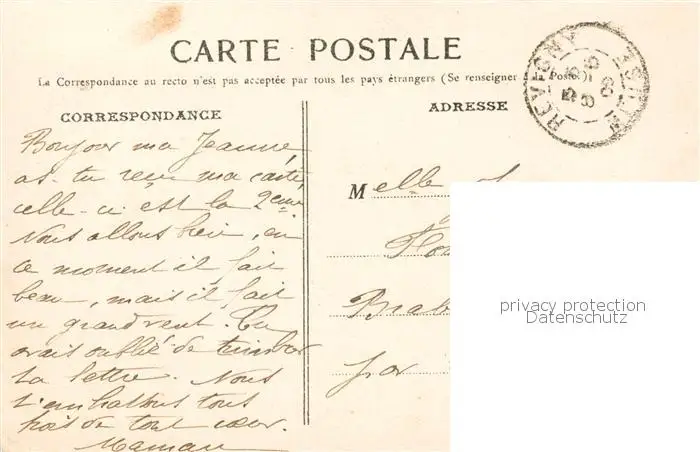 CARTE POSTALE
La Correspondance au recto n'est pas acceptée par tous les pays étrangers (Se renseigner Poste)
CORRESPONDANCE
ADRESSE
Bonjour ma Jeanne
as-tu reçu ma carte
celle-ci est la 2eme.
Nous allons bien, en
ce moment il fait
beau, mais il fait
un grand vent. Tu
avais oublié de timbrer
ta lettre. Nous
t'embrassons tous
de tout cœur.
Maman
Melle
par
REVIGNY
MEUSE
privacy protection
Datenschutz